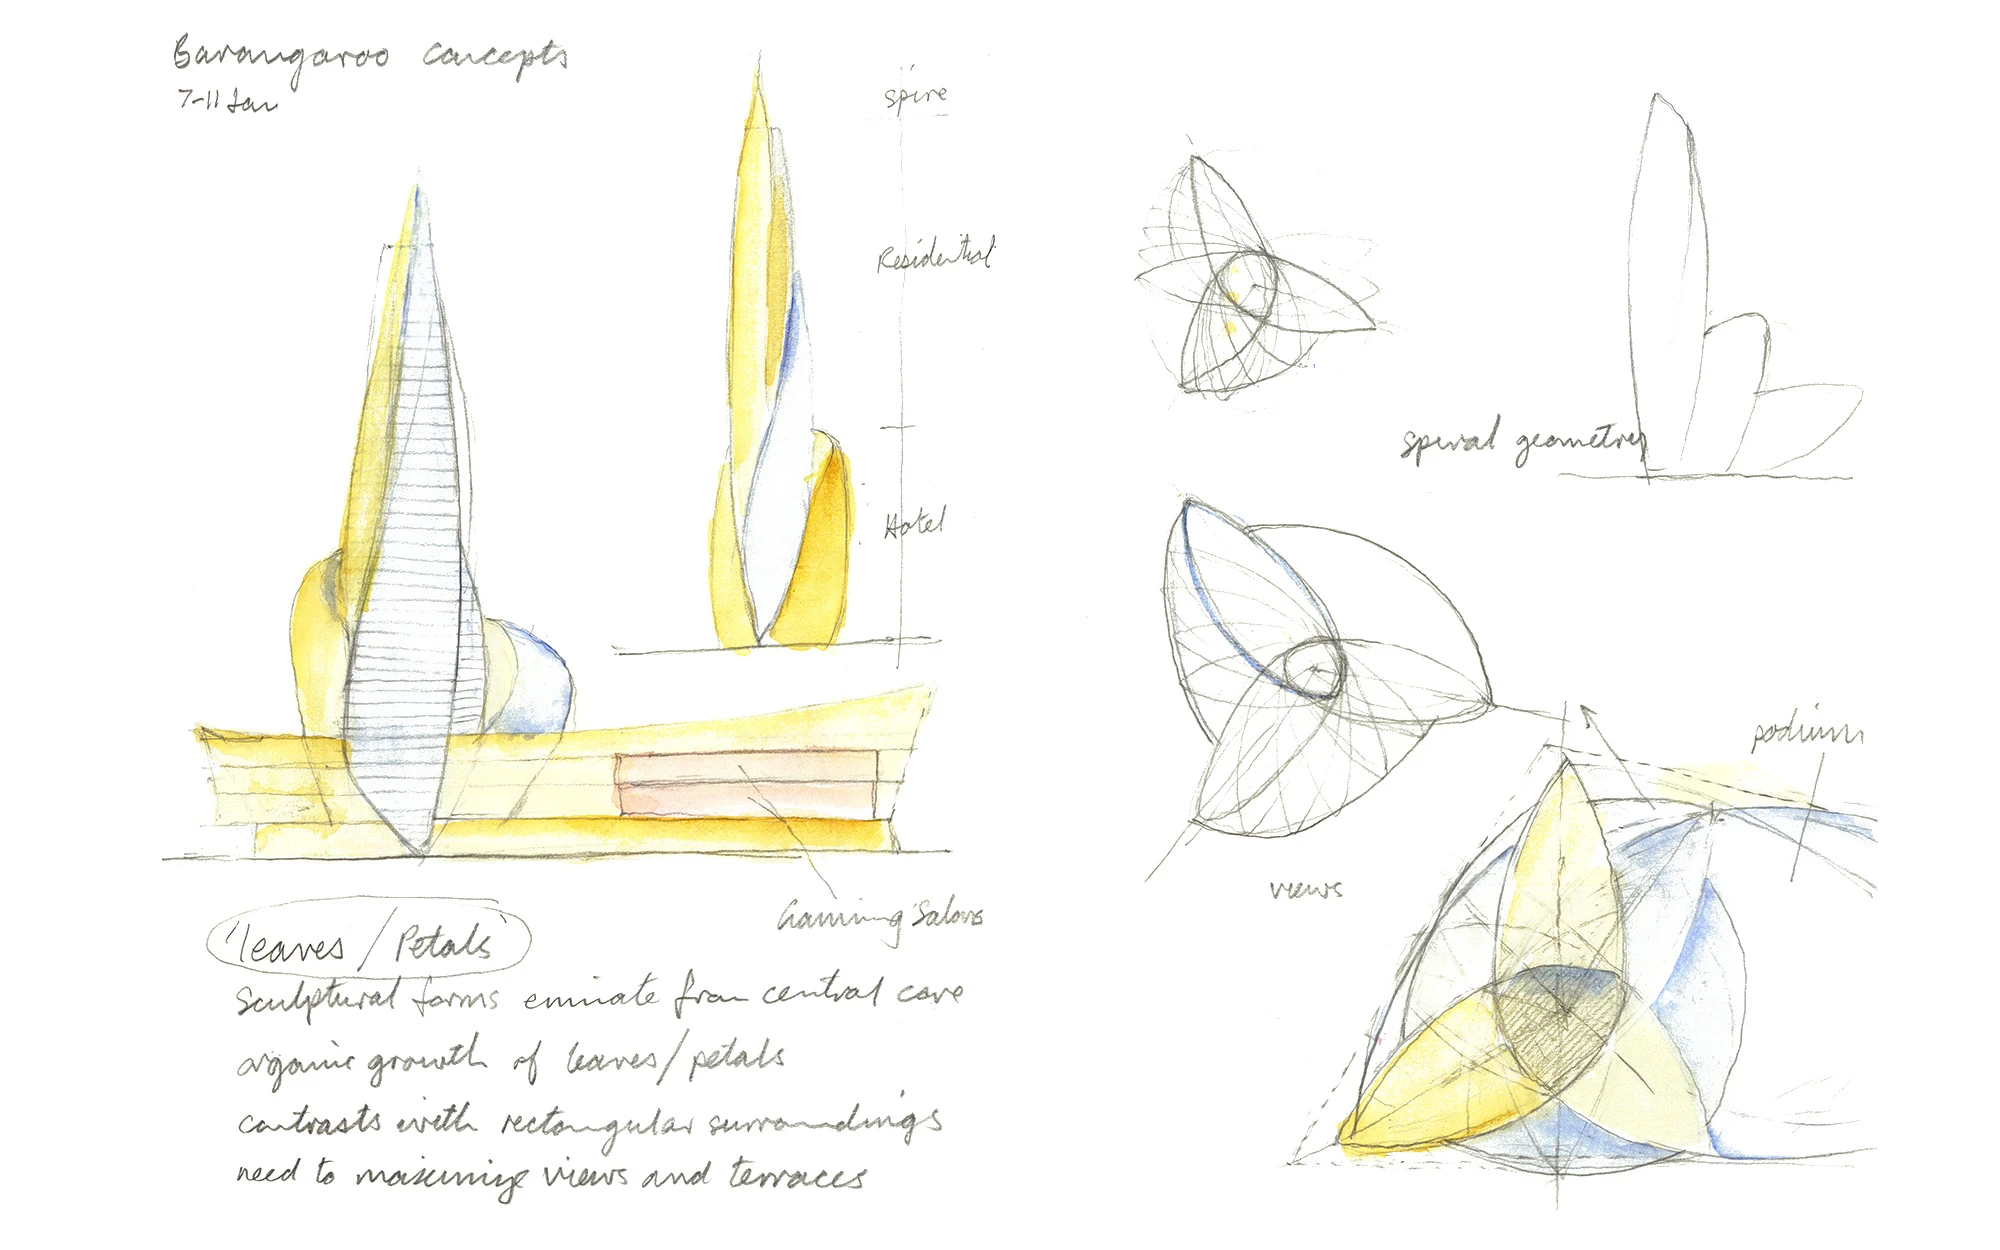 Barangaroo concepts
7-11 Jan
spire
Residential
Hotel
Gaming Salons
'leaves / Petals'
Sculptural forms eminate from central core
organic growth of leaves/petals
contrasts with rectangular surroundings
need to maximize views and terraces
spiral geometry
views
podium